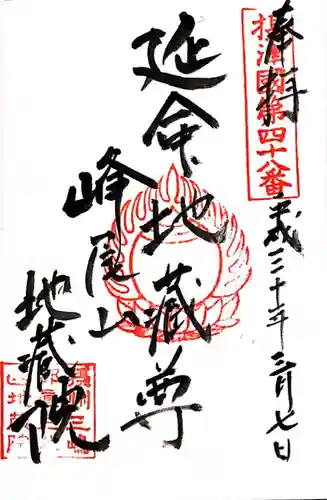 奉拝
摂津國第四十八番
平成三十年三月七日
延命地蔵尊
峰尾山
地蔵院